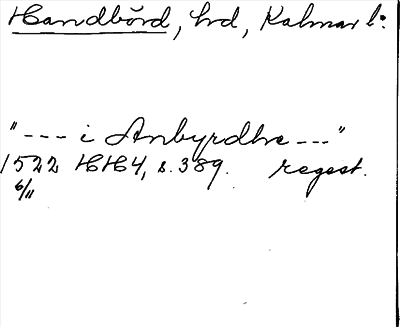 Handbörd, hd, Kalmar l:
"--- i Anbyrdhe ---"
1522 HH4, s. 389. regest.
6/11